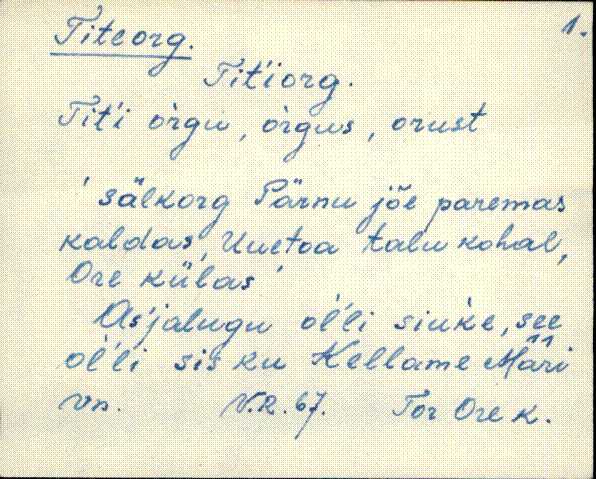 Titeorg. 1.
Tit'iorg.
Tit'i òrgu, òrgus, orust
'sälkorg Pärnu jõe paremas
kaldas, Uuetoa talu kohal,
Ore külas'
As'jalugu ol'li siuke, see
ol'li sis ku Kellame Märi
vn. V.R. 67. Tor Ore k.